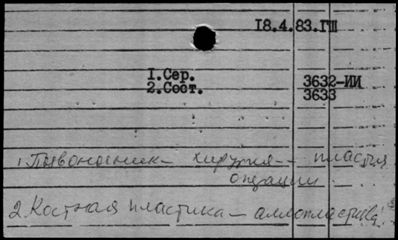 18.4.83.ГШ
1.Сер. 3632-ИИ
2.Сост. 3633
1. Позвоночник – хирургия – пластич
операции
2. Костная пластика – аллопластика